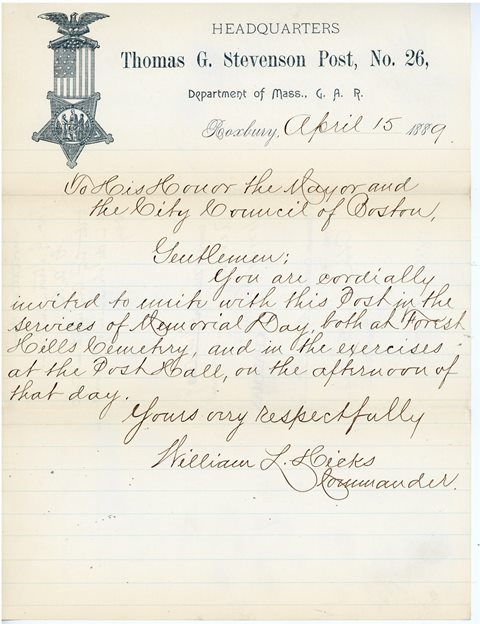 HEADQUARTERS
Thomas G. Stevenson Post, No. 26,
Department of Mass., G. A. R.
Roxbury, April 15 1889.
To His Honor the Mayor and
the City Council of Boston,
Gentlemen;
You are cordially
invited to unite with this Post in the
services of Memorial Day, both at Forest
Hills Cemetery, and in the exercises
at the Post Hall, on the afternoon of
that day.
Yours very respectfully
William L. Hicks
Commander.